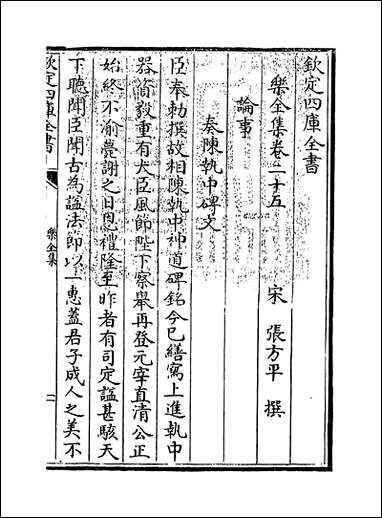 欽定四庫全書
樂全集卷二十五
宋 張方平 撰
論事
奏陳執中碑文
臣奉勅撰故相陳執中神道碑銘今已繕寫上進執中
器質毅重有大臣風節陛下察舉再登元宰直清公正
始終不渝薨謝之日恩禮隆至昨者有司定諡甚駭天
下聽聞臣聞古為諡法節以一惠蓋君子成人之美不
欽定四庫全書
樂全集